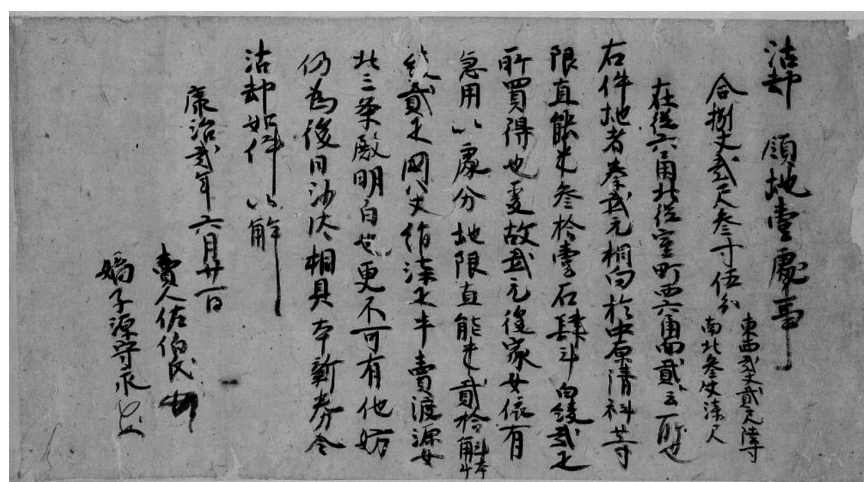 沽却 領地壹處事
合捌丈貳尺叁寸伍分
東西貳丈貳尺陸寸
南北叁丈漆尺
在從六角北從室町西六角面
右件地者秦武元相向於中原清科等
限直能米叁拾壹石肆斗白綾貳疋
所買得也爰故武元後家女依有
急用以處分地限直能米貳拾
貳疋 八丈絹漆疋半賣渡源女
北三条殿明白也更不可有他妨
仍為後日沙汰相具本新券令
沽却如件以解
康治貳年六月廿一日
賣人佐伯氏
嫡子源守永